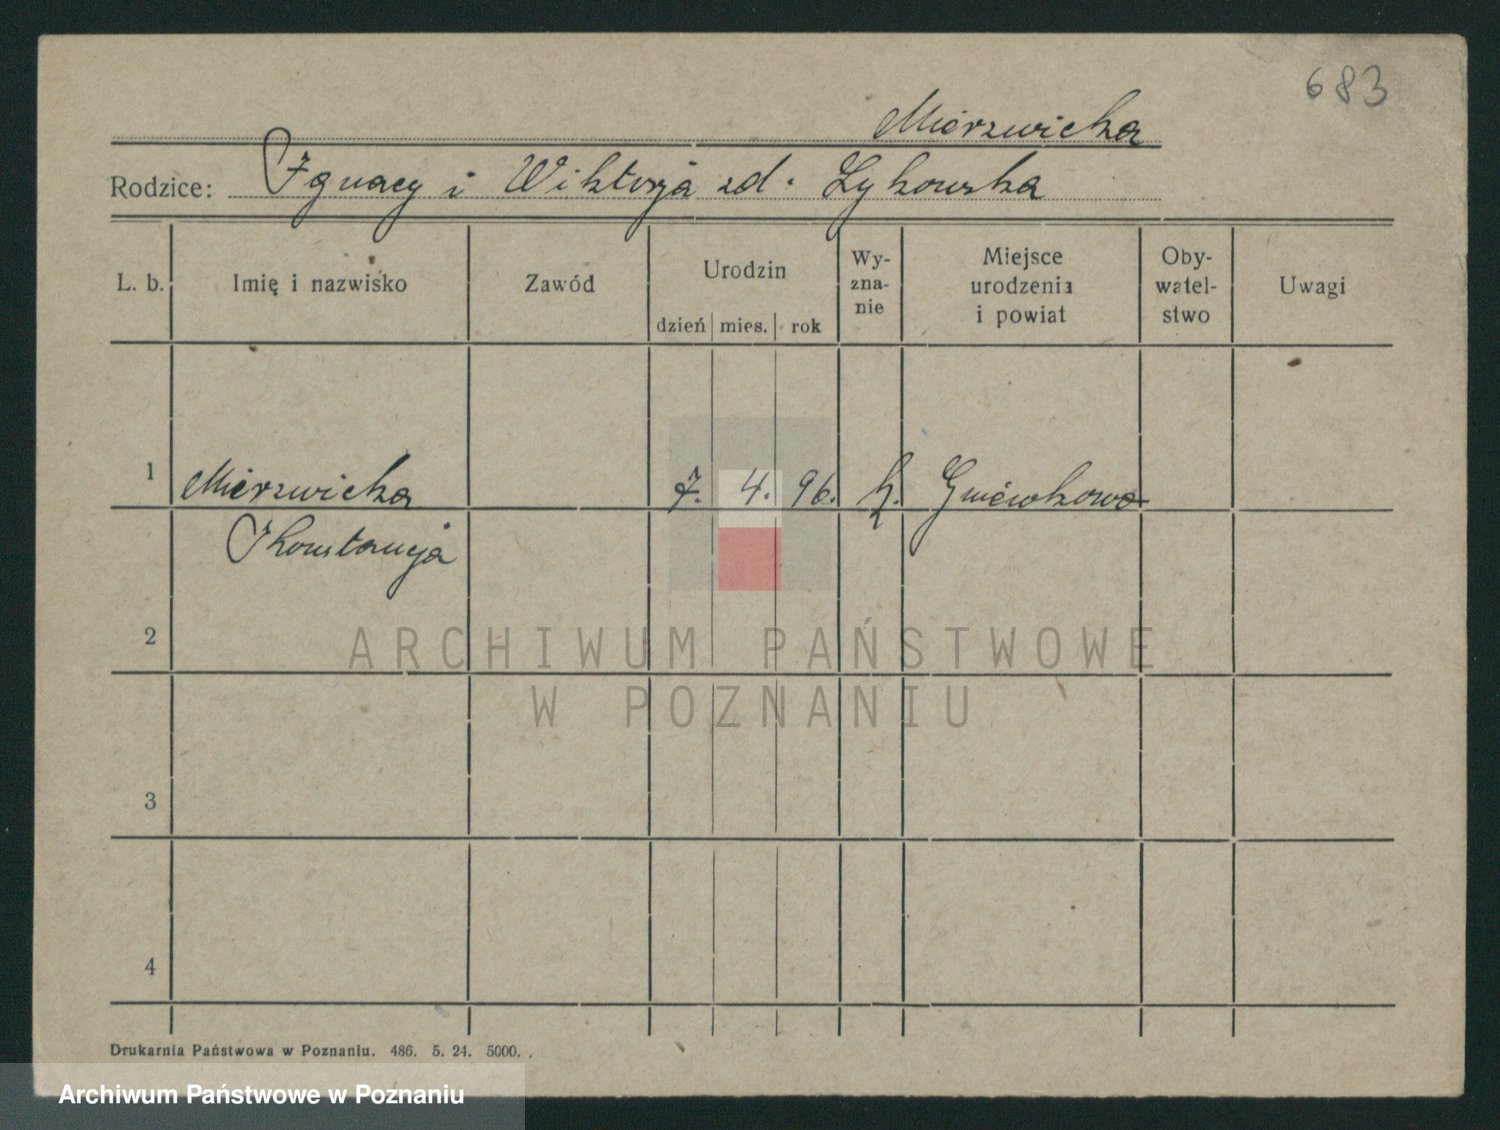 683
Mierzwicka
Rodzice: Ignacy i Wiktorja zd. Łykowska
L. b. Imię i nazwisko Zawód Urodzin dzień mies. rok Wy-zna-nie Miejsce urodzenia i powiat Oby-watel-stwo Uwagi
1 Mierzwicka 7. 4. 96. k. Gniewkowo
Konstancja
2
ARCHIWUM PAŃSTWOWE
W POZNANIU
3
4
Drukarnia Państwowa w Poznaniu. 486. 5. 24. 5000.
Archiwum Państwowe w Poznaniu